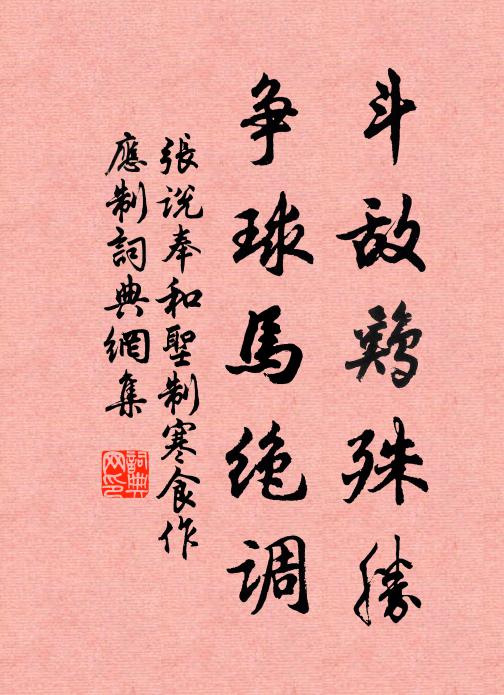 斗敌鷄殊勝
争球馬绝調
張説奉和聖制寒食作
應制詞典網集
詞典网印